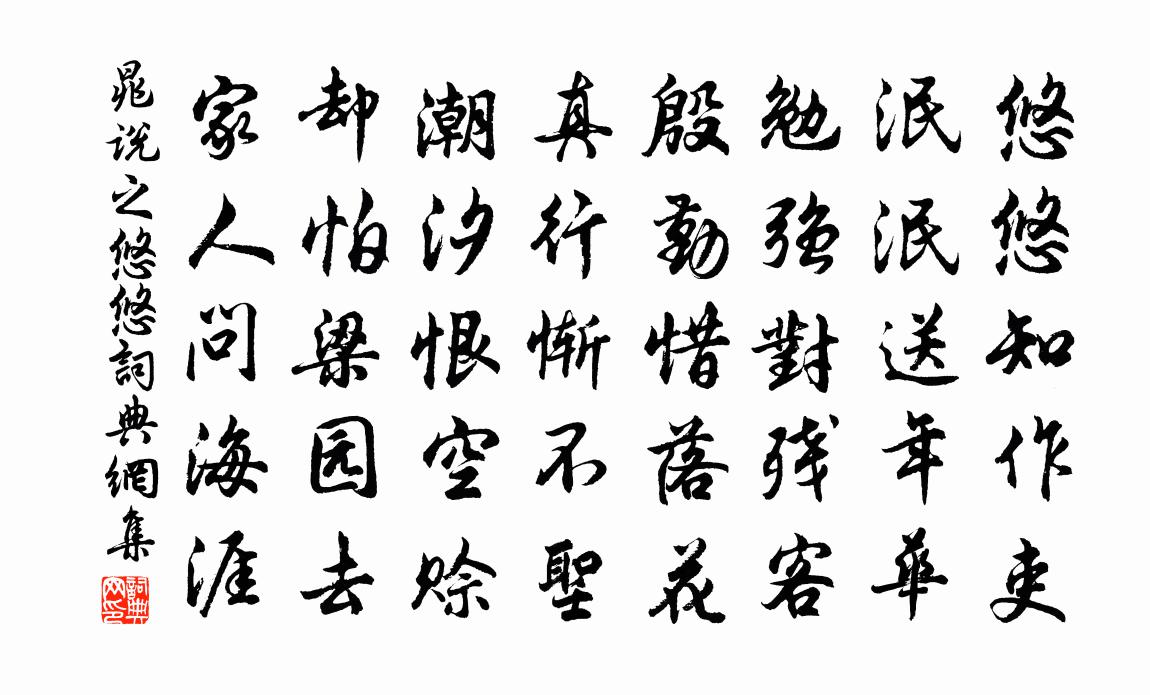 悠悠知作吏
泯泯送年華
勉强對残客
殷勤惜落花
真行惭不聖
潮汐恨空賒
却怕梁园去
家人问海涯
晁说之悠悠詞典網集
詞典网印